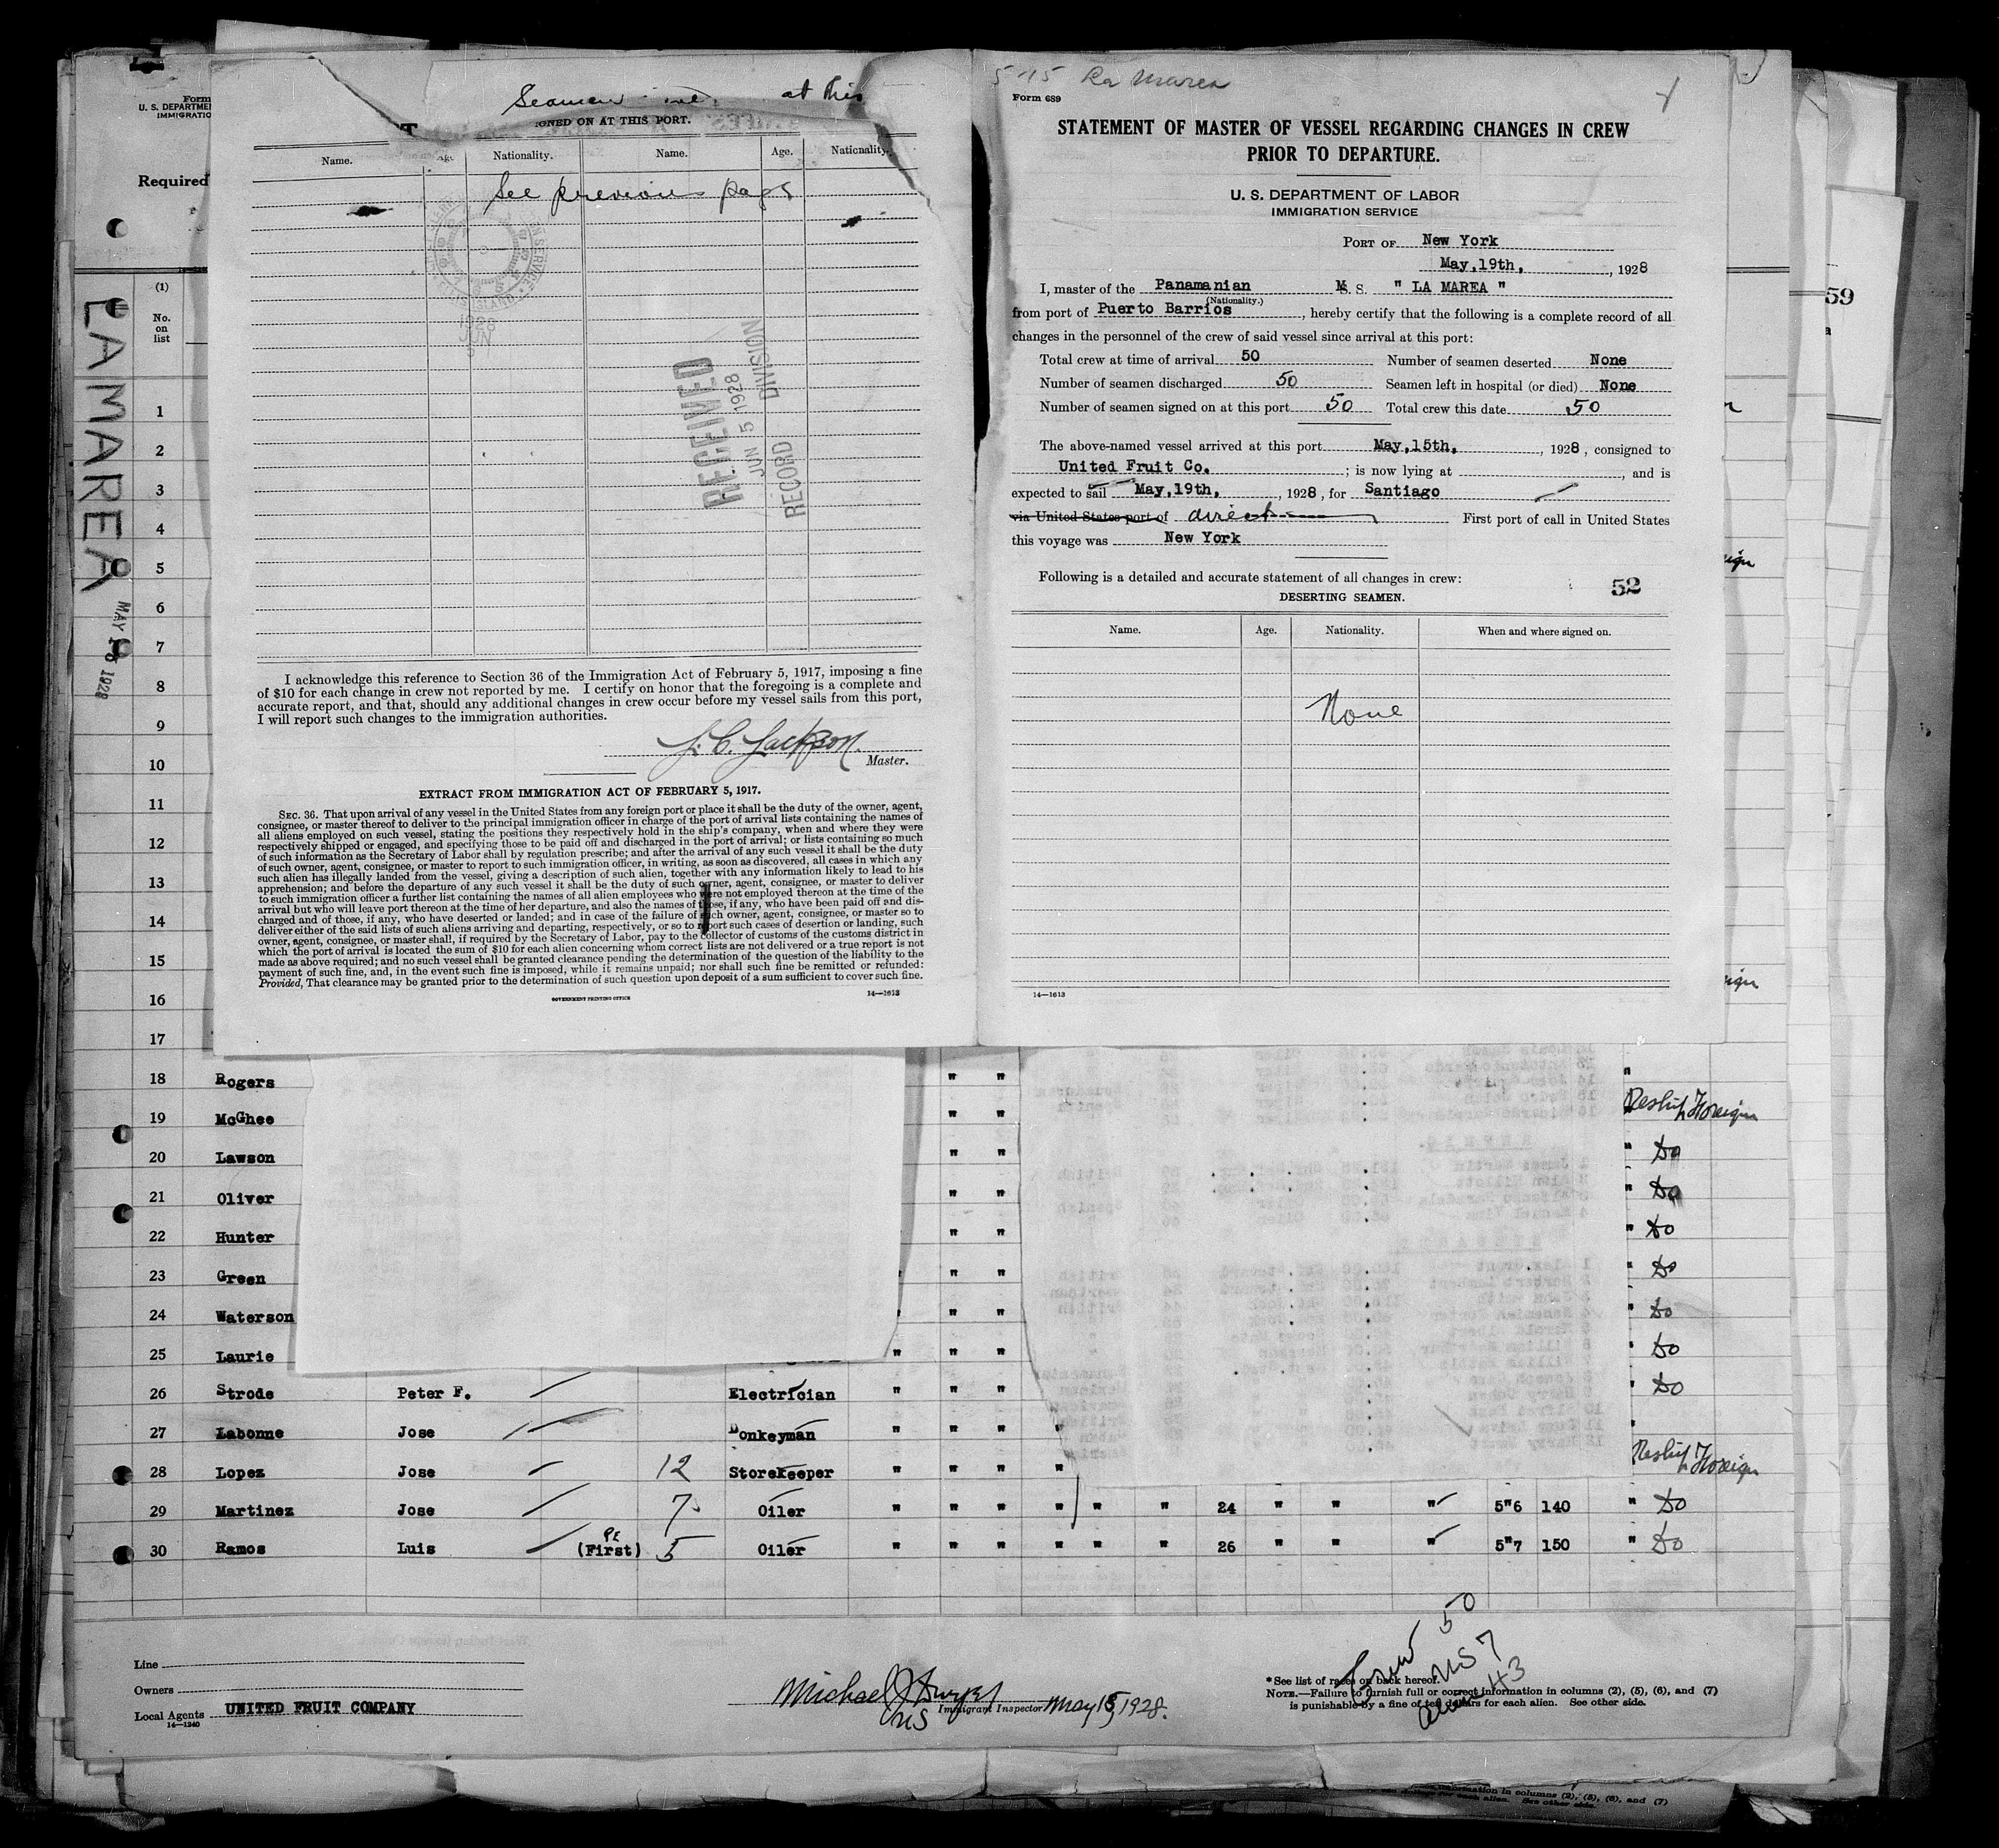 Form
U. S. DEPARTME
IMMIGRATIO
Required
LA MAREA
MAY 1928
(1)
No.
on
list
1
2
3
4
5
6
7
8
9
10
11
12
13
14
15
16
17
Seamen at this
GNED ON AT THIS PORT.
Name. Age. Nationality. Name. Age. Nationality.
See previous page
1928
JUN
RECEIVED
JUN 5 1928
RECORD DIVISION
I acknowledge this reference to Section 36 of the Immigration Act of February 5, 1917, imposing a fine
of $10 for each change in crew not reported by me. I certify on honor that the foregoing is a complete and
accurate report, and that, should any additional changes in crew occur before my vessel sails from this port,
I will report such changes to the immigration authorities.
Jackson
Master.
EXTRACT FROM IMMIGRATION ACT OF FEBRUARY 5, 1917.
SEC. 36. That upon arrival of any vessel in the United States from any foreign port or place it shall be the duty of the owner, agent,
consignee, or master thereof to deliver to the principal immigration officer in charge of the port of arrival lists containing the names of
all aliens employed on such vessel, stating the positions they respectively hold in the ship's company, when and where they were
respectively shipped or engaged, and specifying those to be paid off and discharged in the port of arrival; or lists containing so much
of such information as the Secretary of Labor shall by regulation prescribe; and after the arrival of any such vessel it shall be the duty
of such owner, agent, consignee, or master to report to such immigration officer, in writing, as soon as discovered, all cases in which any
such alien has illegally landed from the vessel, giving a description of such alien, together with any information likely to lead to his
apprehension; and before the departure of any such vessel it shall be the duty of such owner, agent, consignee, or master to deliver
to such immigration officer a further list containing the names of all alien employees who were not employed thereon at the time of the
arrival but who will leave port thereon at the time of her departure, and also the names of those, if any, who have been paid off and dis-
charged and of those, if any, who have deserted or landed; and in case of the failure of such owner, agent, consignee, or master so to
deliver either of the said lists of such aliens arriving and departing, respectively, or so to report such cases of desertion or landing, such
owner, agent, consignee, or master shall, if required by the Secretary of Labor, pay to the collector of customs of the customs district in
which the port of arrival is located the sum of $10 for each alien concerning whom correct lists are not delivered or a true report is not
made as above required; and no such vessel shall be granted clearance pending the determination of the question of the liability to the
payment of such fine, and, in the event such fine is imposed, while it remains unpaid; nor shall such fine be remitted or refunded:
Provided, That clearance may be granted prior to the determination of such question upon deposit of a sum sufficient to cover such fine.
GOVERNMENT PRINTING OFFICE 14—1613
5-15 La Marea
Form 689
STATEMENT OF MASTER OF VESSEL REGARDING CHANGES IN CREW
PRIOR TO DEPARTURE.
U. S. DEPARTMENT OF LABOR
IMMIGRATION SERVICE
PORT OF New York
May, 19th, , 1928
I, master of the Panamanian M. S. " LA MAREA "
(Nationality.)
from port of Puerto Barrios , hereby certify that the following is a complete record of all
changes in the personnel of the crew of said vessel since arrival at this port:
Total crew at time of arrival 50 Number of seamen deserted None
Number of seamen discharged 50 Seamen left in hospital (or died) None
Number of seamen signed on at this port 50 Total crew this date 50
The above-named vessel arrived at this port May, 15th, , 1928, consigned to
United Fruit Co. ; is now lying at , and is
expected to sail May, 19th, , 1928, for Santiago
via United States port of direct First port of call in United States
this voyage was New York
Following is a detailed and accurate statement of all changes in crew: 52
DESERTING SEAMEN.
Name. Age. Nationality. When and where signed on.
None
14—1613
59
18 Rogers " " "
19 McGhee " " " Reship Foreign
20 Lawson " " " Do
21 Oliver " " " Do
22 Hunter " " " Do
23 Green " " " Do
24 Waterson " " " Do
25 Laurie " " " Do
26 Strode Peter F. Electrician " " " " Do
27 Labonne Jose Donkeyman " " " " "
28 Lopez Jose 12 Storekeeper " " " " Reship Foreign
29 Martinez Jose 7 Oiler " " " " " 24 " " " 5"6 140 " Do
30 Ramos Luis PE (First) 5 Oiler " " " " " " 26 " " " 5"7 150 " Do
Line
Owners
Local Agents UNITED FRUIT COMPANY
14—1240
Michael J Dwyer
Immigrant Inspector May 15, 1928.
Crew 50
US 7
Alien 43
*See list of races on back hereof.
NOTE.—Failure to furnish full or correct information in columns (2), (5), (6), and (7)
is punishable by a fine of ten dollars for each alien. See other side.
information in columns (2), (5), (6), and (7)
each alien. See other side.